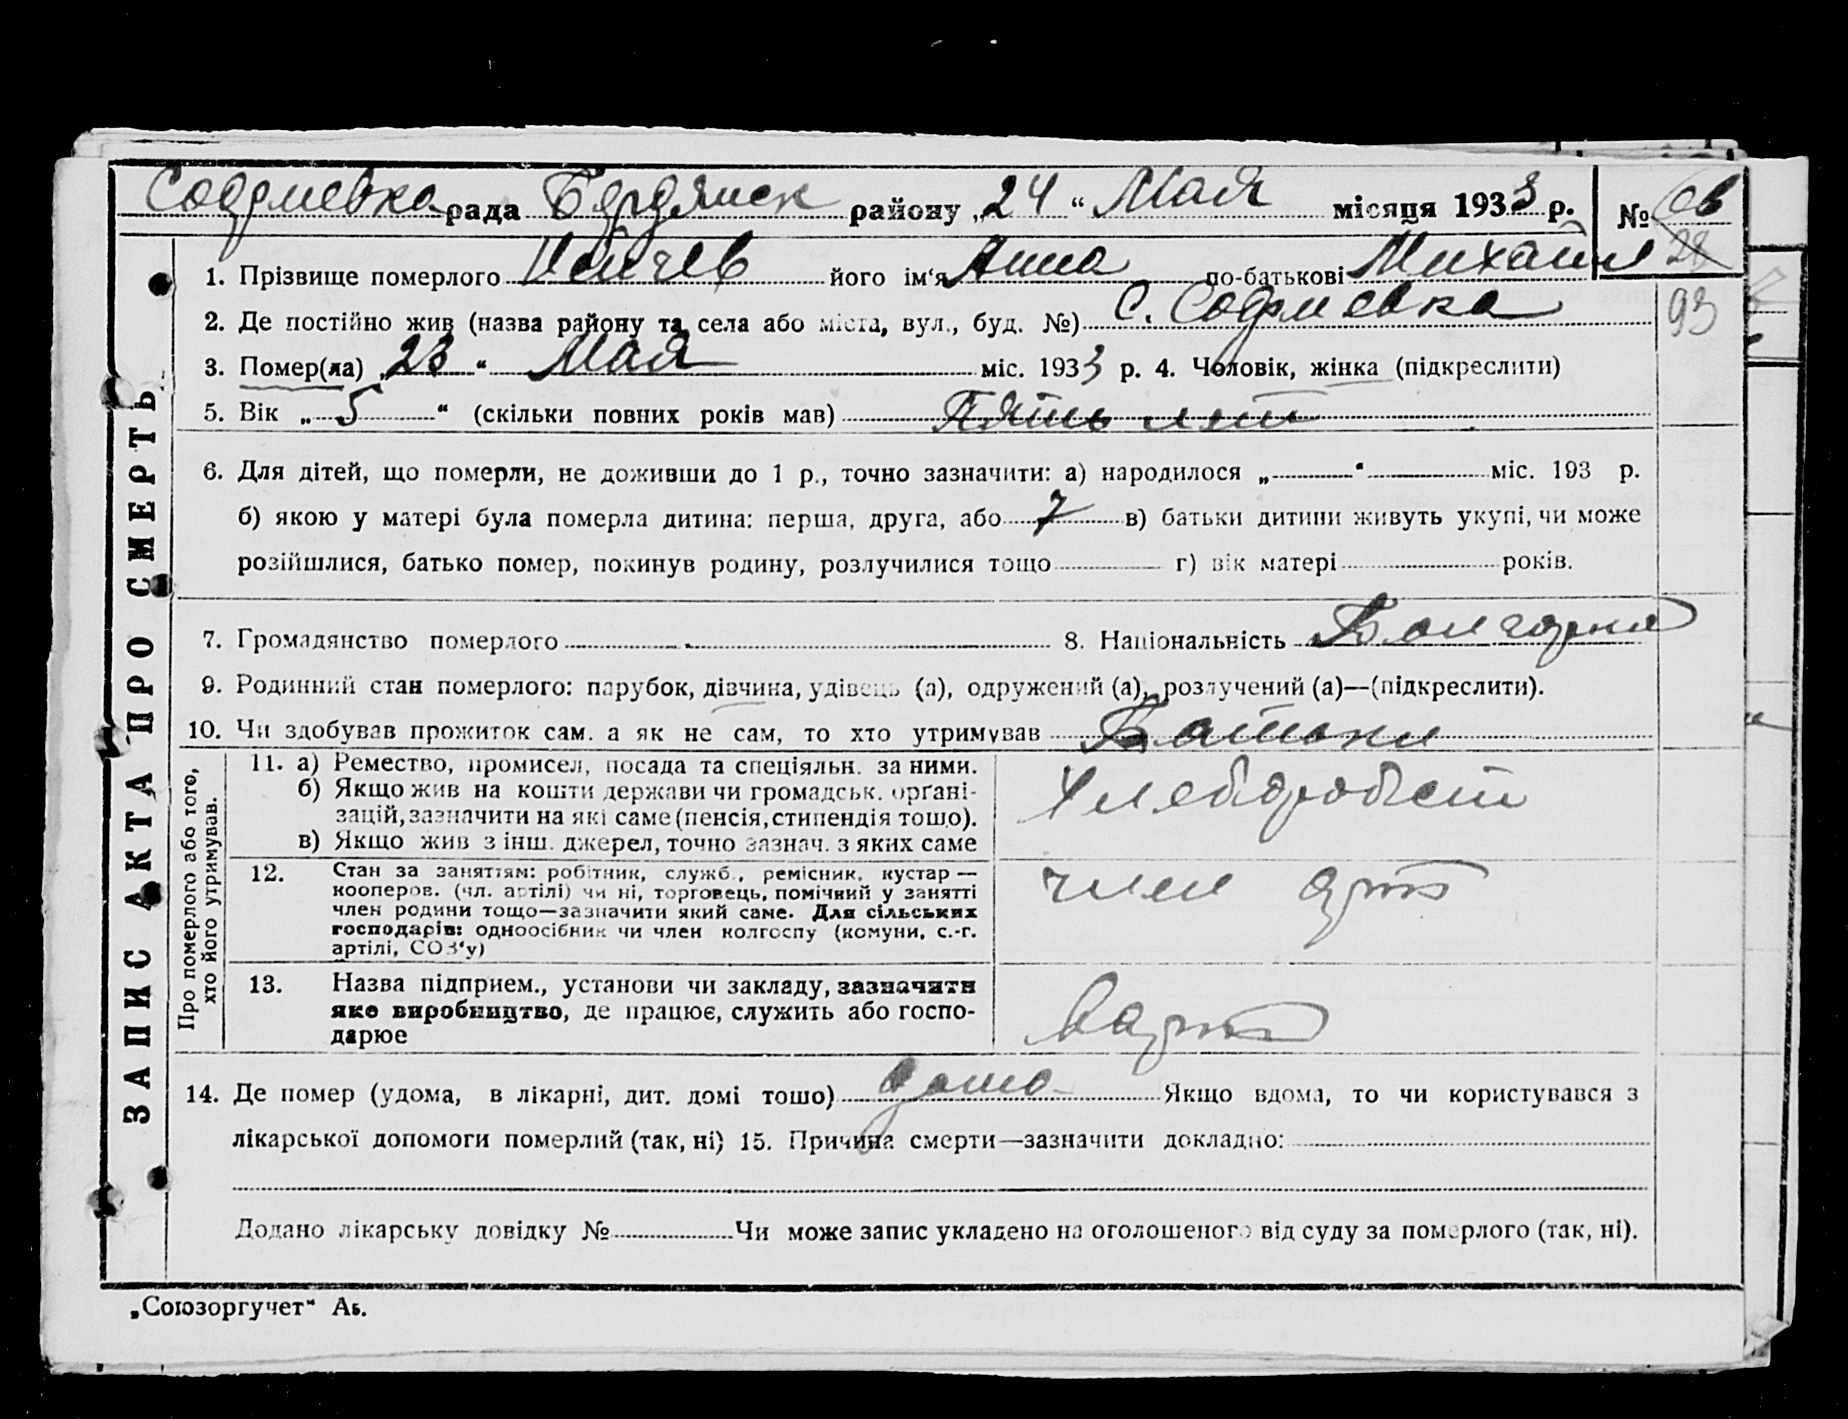 Софиевка рада Бердянск району „24“ Мая місяця 1933 р. №
28
1. Прізвище померлого його ім‘я Анна по-батькові Михайл
93
2. Де постійно жив (назва району та села або міста, вул., буд. №) С. Софиевка
3. Помер(ла) „23“ Мая міс. 1933 р. 4. Чоловік, жінка (підкреслити)
5. Вік „5“ (скільки повних років мав) Пять лет
6. Для дітей, що померли, не доживши до 1 р., точно зазначити: а) народилося „ “ міс. 193 р.
б) якою у матері була померла дитина: перша, друга, або 7 в) батьки дитини живуть укупі, чи може
розійшлися, батько помер, покинув родину, розлучилися тощо г) вік матері років.
7. Громадянство померлого 8. Національність Болгарка
9. Родинний стан померлого: парубок, дівчина, удівець (а), одружений (а), розлучений (а)—(підкреслити).
10. Чи здобував прожиток сам. а як не сам, то хто утримував Батьки
ЗАПИС АКТА ПРО СМЕРТЬ
Про померлого або того,
хто його утримував.
11. а) Ремество, промисел, посада та спеціяльн. за ними.
б) Якщо жив на кошти держави чи громадськ. орґані-
зацій, зазначити на які саме (пенсія, стипендія тощо).
в) Якщо жив з інш. джерел, точно зазнач. з яких саме
12. Стан за заняттям: робітник, служб., ремісник, кустар —
кооперов. (чл. артілі) чи ні, торговець, помічний у занятті
член родини тощо—зазначити який саме. Для сільських
господарів: одноосібник чи член колгоспу (комуни, с.-г.
артілі, СОЗ‘у)
член арт
13. Назва підприєм., установи чи закладу, зазначити
яке виробництво, де працює, служить або госпо-
дарює
14. Де помер (удома, в лікарні, дит. домі тощо) дома Якщо вдома, то чи користувався з
лікарської допомоги померлий (так, ні) 15. Причина смерти—зазначити докладно:
Додано лікарську довідку № Чи може запис укладено на оголошеного від суду за померлого (так, ні).
„Союзоргучет“ Аь.